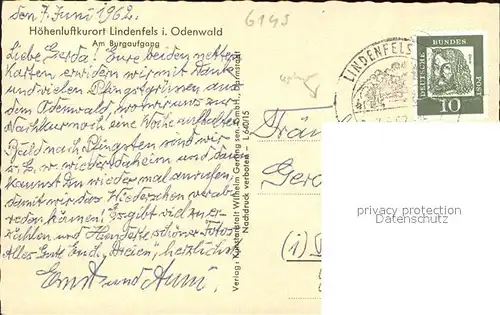 den 7. Juni 1962.
6143
Höhenluftkurort Lindenfels i. Odenwald
Am Burgaufgang
Liebe Gerda! Eure beiden netten
Karten erwidern wir mit Dank
und vielen Pfingstgrüssen aus
dem Odenwald, wo wir uns zur
Nachkur noch eine Woche aufhalten.
Bald nach Pfingsten sind wir
wieder daheim und dann
kannst Du wieder mal anrufen
damit wir das Wiedersehen verab
reden können! Es gibt viel zu er-
zählen und Hunderte schöner Fotos
Alles Gute Euch "Dreien", herzlichst
Ernst und Anni.
Verlag: Kunstanstalt Wilhelm Gerling sen. GmbH., Darmstadt
Nachdruck verboten - L 640/15
LINDENFELS
DEUTSCHE BUNDES POST
10
Fräu
Ger
(i)
privacy protection